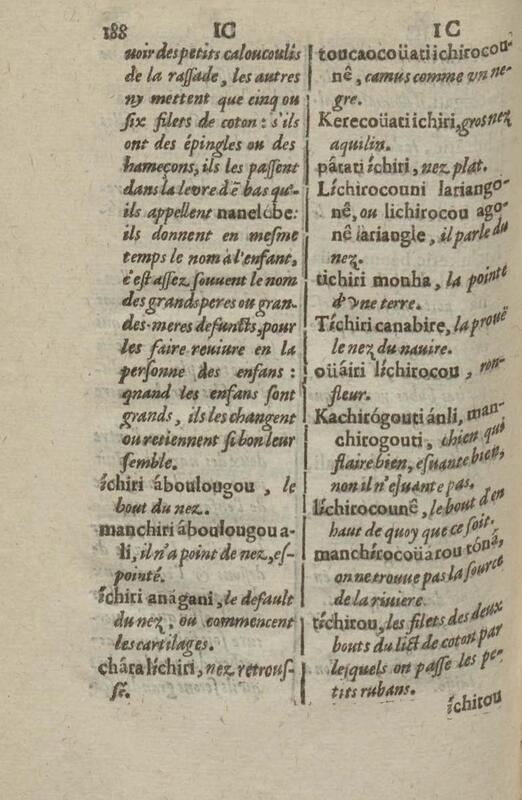 188 IC IC
uoir des petits caloucoulis
de la raſſade, les autres
ny mettent que cinq ou
ſix filets de coton: s'ils
ont des épingles ou des
hameçons, ils les paſſent
dans la levre d'ẽ bas qu'-
ils appellent nanelébe:
ils donnent en meſme
temps le nom à l'enfant,
c'eſt aſſez ſouuent le nom
des grands peres ou gran-
des-meres defuncts, pour
les faire reuiure en la
perſonne des enfans:
quand les enfans ſont
grands, ils les changent
ou retiennent ſi bon leur
ſemble.
íchiri áboulougou, le
bout du nez.
manchiri áboulougou a-
li, il n'a point de nez, eſ-
pointé.
íchiri anágani, le default
du nez, où commencent
les cartilages.
chára líchiri, nez retrouſ-
ſé.
toucaocoüati ichirocou-
nê, camus comme vn ne-
gre.
Kerecoüati ichiri, gros nez
aquilin.
pátati íchiri, nez plat.
Líchirocouni lariango-
nê, ou lichirocou ago-
nê lariangle, il parle du
nez.
tichiri monha, la pointe
d'vne terre.
Tíchiri canabire, la prouë
le nez du nauire.
oüáiri líchirocou, ron-
fleur.
Kachirógouti ánli, man-
chirogouti, chien qui
flaire bien, eſuante bien,
non il n'eſuante pas.
líchirocounê, le bout d'en
haut de quoy que ce ſoit.
manchírocoüárou tóná,
on ne trouue pas la ſource
de la riuiere.
tíchirou, les filets des deux
bouts du lict de coton par
leſquels on paſſe les pe-
tits rubans.
íchirou